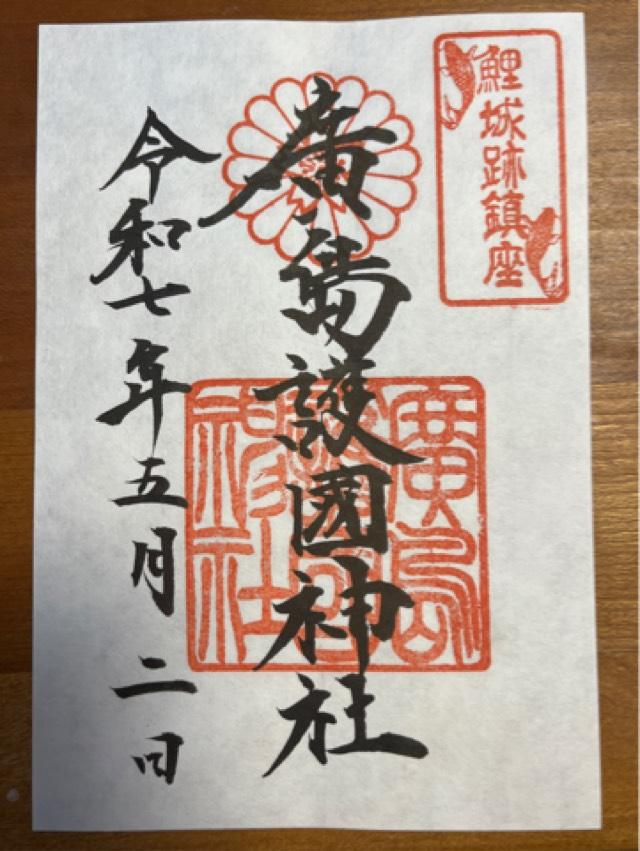 鯉城跡鎮座
廣島護國神社
廣島護國神社
令和七年五月二日